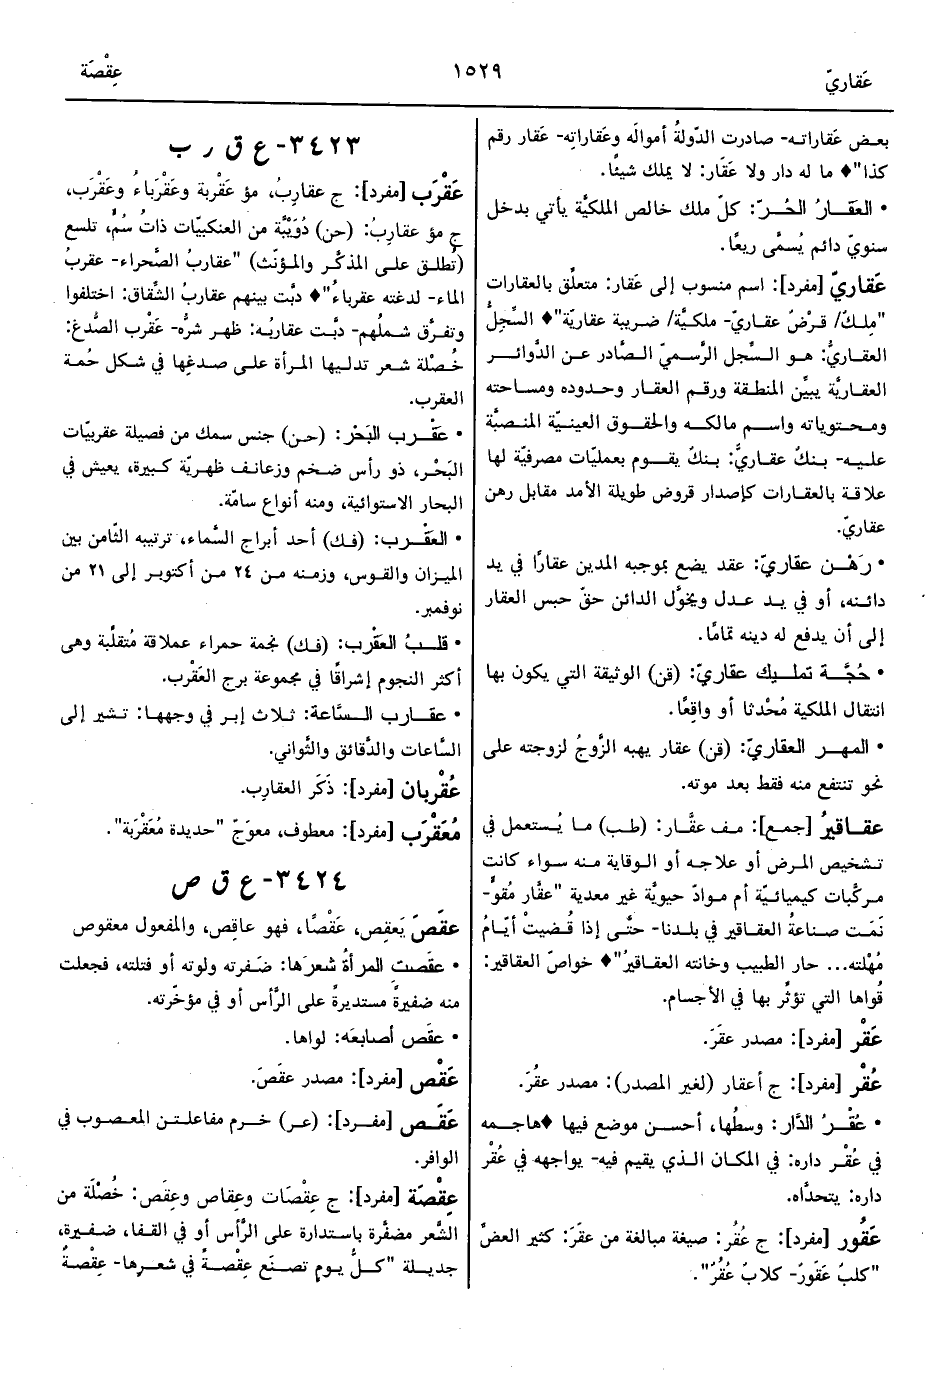 عَقاريّ
١٥٢٩
عِقْصَة
بعض عَقاراته- صادرت الدّولةُ أموالَه وعَقاراتِه- عَقار رقم
كذا"♦ ما له دار ولا عَقَار: لا يملك شيئًا.
• العَقارُ الحُرّ: كلّ ملك خالص الملكية يأتي بدخل
سنويّ دائم يُسمَّى ريعًا.
عَقاريّ [مفرد]: اسم منسوب إلى عَقار: متعلِّق بالعقارات
"مِلكٌ/ قرْضٌ عقاريّ- ملكيَّة/ ضريبة عقاريّة"♦ السِّجلّ
العقاريُّ: هو السِّجل الرَّسميّ الصَّادر عن الدَّوائر
العقاريَّة يبيِّن المنطقة ورقم العقار وحدوده ومساحته
ومحتوياته واسم مالكه والحقوق العينيّة المنصبَّة
عليه- بنكٌ عقاريٌّ: بنكٌ يقوم بعمليات مصرفيّة لها
علاقة بالعقارات كإصدار قروض طويلة الأمد مقابل رهن
عقاريّ.
• رَهْن عقاريّ: عقد يضع بموجبه المدين عقارًا في يد
دائنه، أو في يد عدل ويخوَّل الدائن حقّ حبس العقار
إلى أن يدفع له دينه تمامًا.
• حُجَّة تمليك عقاريّ: (قن) الوثيقة التي يكون بها
انتقال الملكية مُحْدثا أو واقعًا.
• المهر العقاريّ: (قن) عقار يهبه الزَّوجُ لزوجته على
نحو تنتفع منه فقط بعد موته.
عقاقيرُ [جمع]: مف عقَّار: (طب) ما يُستعمل في
تشخيص المرض أو علاجه أو الوقاية منه سواء كانت
مركّبات كيميائيّة أم موادّ حيويَّة غير معدية "عقَّار مُقوٍّ-
نَمَت صناعةُ العقاقير في بلدنا- حتَّى إذا قُضيتْ أيّامُ
مُهْلته... حار الطبيب وخانته العقاقيرُ"♦ خواصّ العقاقير:
قُواها التي تؤثِّر بها في الأجسام.
عَقْر [مفرد]: مصدر عقَرَ.
عُقْر [مفرد]: ج أعقار (لغير المصدر): مصدر عقُرَ.
• عُقْرُ الدَّار: وسطُها، أحسن موضع فيها ♦هاجمه
في عُقْر داره: في المكان الذي يقيم فيه- يواجهه في عُقْر
داره: يتحدَّاه.
عَقُور [مفرد]: ج عُقُر: صيغة مبالغة من عقَرَ: كثير العضّ
"كلبٌ عَقَورٌ- كلابٌ عُقُرٌ".
٣٤٢٣- ع ق ر ب
عَقْرَب [مفرد]: ج عقاربُ، مؤ عَقْربة وعَقْرَباءُ وعَقْرَب،
ج مؤ عقاربُ: (حن) دُوَيْبَّة من العنكبيّات ذاتُ سُمّ، تلسع
(تُطلق على المذكَّر والمؤنّث) "عقاربُ الصَّحراء- عقربُ
الماء- لدغته عقرباءُ"♦ دبَّت بينهم عقاربُ الشِّقاق: اختلفوا
وتفرَّق شملُهم- دبَّت عقاربُه: ظهر شرُّه- عَقْرب الصُّدغ:
خُصْلة شعر تدليها المرأة على صدغها في شكل حُمة
العقرب.
• عَقْرب البَحْر: (حن) جنس سمك من فصيلة عقربيّات
البَحْر، ذو رأس ضخم وزعانف ظهريّة كبيرة، يعيش في
البحار الاستوائية، ومنه أنواع سامّة.
• العَقْرب: (فك) أحد أبراج السَّماء، ترتيبه الثّامن بين
الميزان والقوس، وزمنه من ٢٤ من أكتوبر إلى ٢١ من
نوفمبر.
• قلبُ العَقْرب: (فك) نجمة حمراء عملاقة مُتقلِّبة وهى
أكثر النجوم إشراقًا في مجموعة برج العَقْرب.
• عقارب السَّاعة: ثلاث إبر في وجهها: تشير إلى
السَّاعات والدَّقائق والثَّواني.
عُقْربان [مفرد]: ذَكَر العقارِب.
مُعَقْرَب [مفرد]: معطوف، معوَجّ "حديدة مُعَقْرَبة".
٣٤٢٤- ع ق ص
عقَصَ يَعقِص، عَقْصًا، فهو عاقِص، والمفعول معقوص
• عقَصتِ المرأةُ شعرَها: ضَفرته ولوته أو فتلته، فجعلت
منه ضفيرةً مستديرةً على الرَّأس أو في مؤخّرته.
• عقَص أصابعَه: لواها.
عَقْص [مفرد]: مصدر عقَصَ.
عَقَص [مفرد]: (عر) خرم مفاعلتن المعصوب في
الوافر.
عِقْصَة [مفرد]: ج عِقْصَات وعِقاص وعِقَص: خُصْلَة من
الشَّعر مضفَّرة باستدارة على الرَّأس أو في القفا، ضفيرة،
جديلة "كلُّ يوم تصنَع عِقْصةً في شعرها- عِقْصةٌ